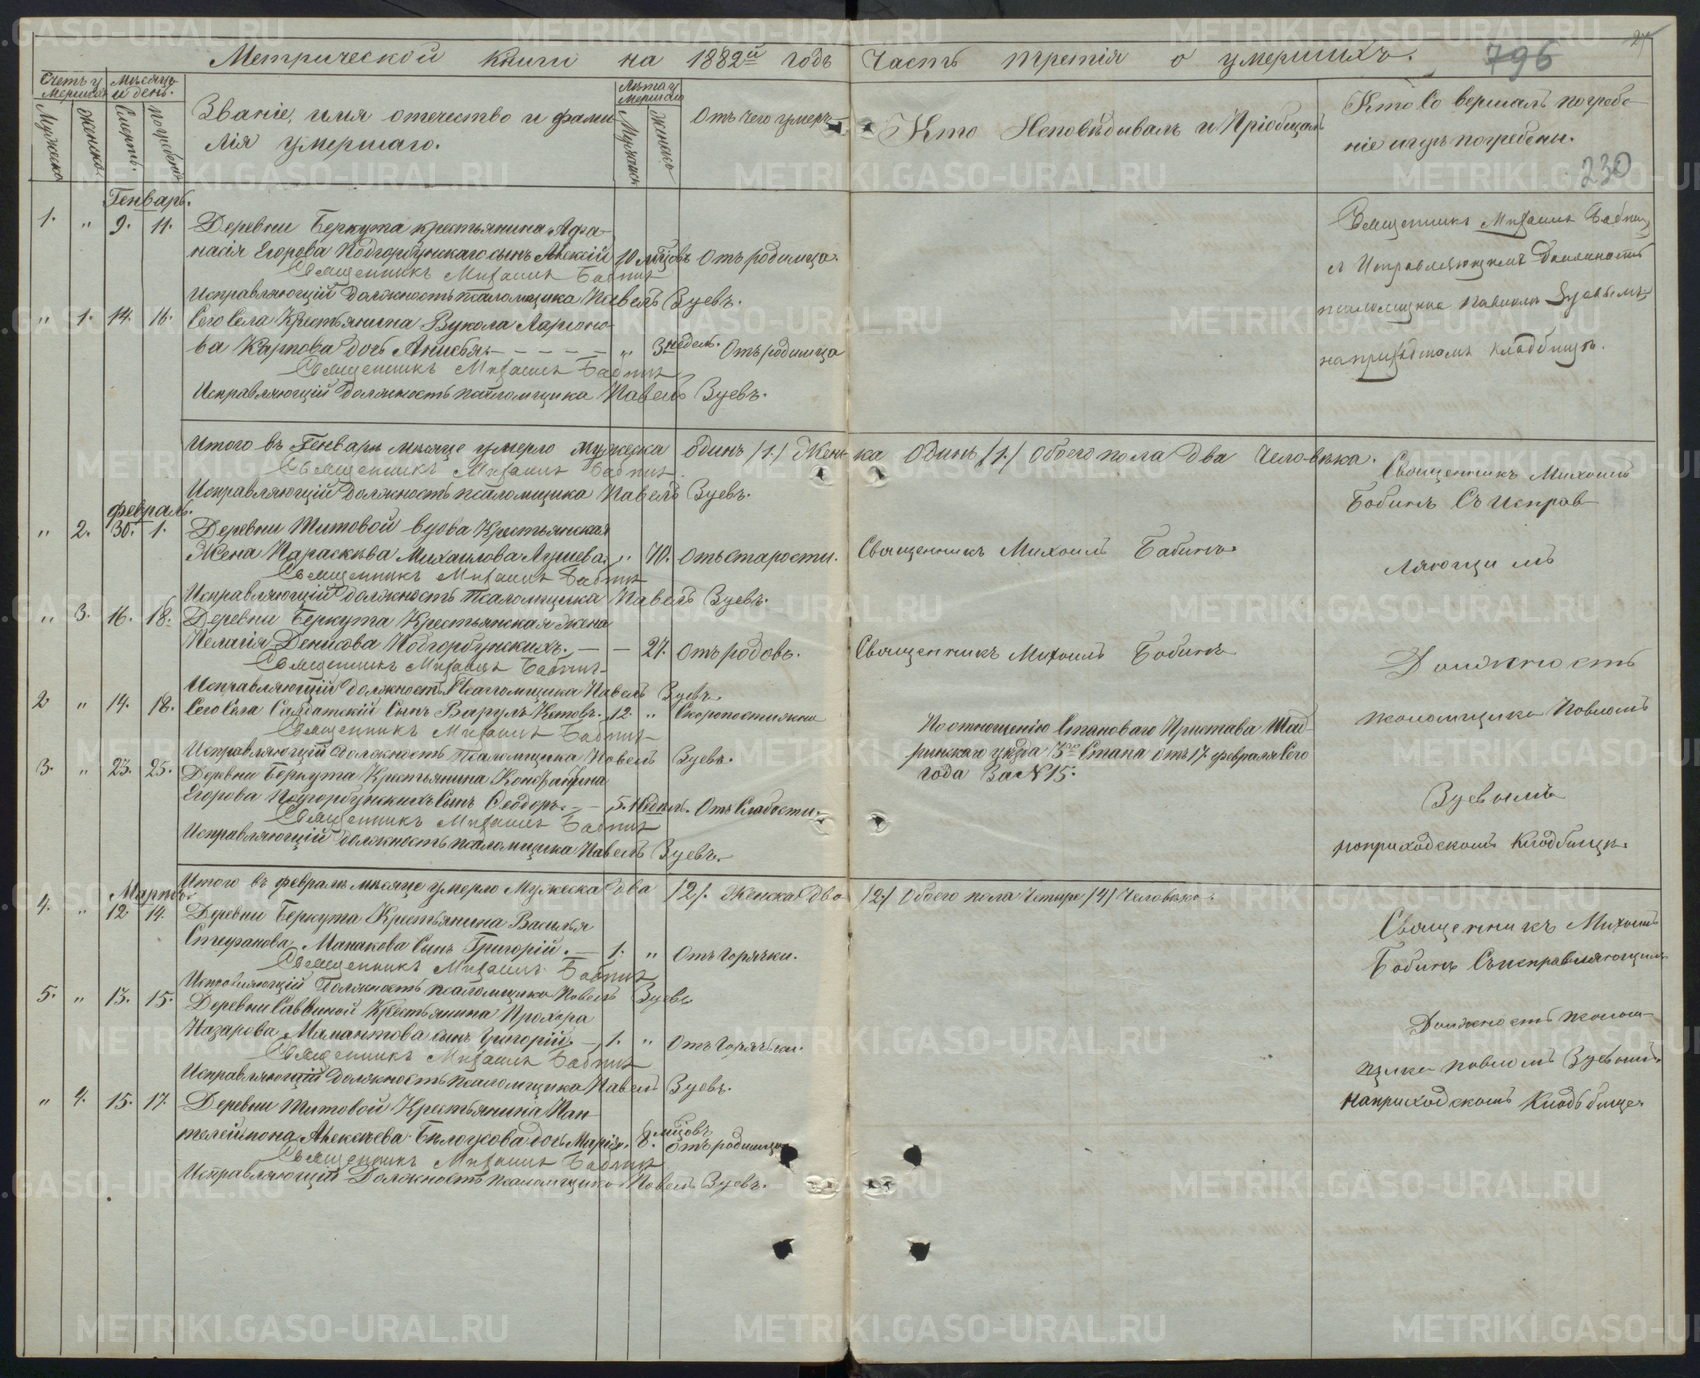 Метрической книги на 1882й годъ Часть третія о умершихъ. 796
Счетъ умершихъ
Мужеска
Женска.
Мѣсяцъ и день.
Смерть.
Погребенія
Званіе, имя отечество и фами-
лія умершаго.
Лѣта умершаго
Мужска
Женска
Отъ чего умеръ
Кто Исповѣдывалъ и Пріобщалъ
Кто совершалъ погребе-
ніе и гдѣ погребены.
230
Генварь.
1. " 9. 11. Деревни Беркута крестьянина Афа-
насія Егорова Подгорбунскаго сынъ Алексій 10 мцовъ Отъ родимца.
Священникъ Михаилъ Бабинъ
Исправляющій должность псаломщика Павелъ Зуевъ.
" 1. 14. 16. Сего Села Крестьянина Вукола Ларіоно-
ва Карпова дочь Анисья " 3 недѣль. Отъ родимца
Священникъ Михаилъ Бабинъ
Исправляющій должность псаломщика Павелъ Зуевъ.
Священникъ Михаилъ Бабинъ
съ Исправляющимъ Должность
псаломщика Павломъ Зуевымъ
на приходскомъ кладбищѣ.
Итого въ Генварѣ мѣсяце умерло мужеска одинъ /1/ Женска Одинъ /1/ Обоего пола два человѣка.
Священникъ Михаилъ Бабинъ
Исправляющій должность псаломщика Павелъ Зуевъ.
февраль.
" 2. 30. 1. Деревни Титовой вдова Крестьянская
Жена Параскѣва Михаилова " 70. Отъ старости. Священникъ Михаилъ Бабинъ
Священникъ Михаилъ Бабинъ
Исправляющій должность Псаломщика Павелъ Зуевъ.
" 3. 16. 18. Деревни Беркута Крестьянская жена
Пелагія Денисова Подгорбунскихъ. 27. Отъ родовъ. Священникъ Михаилъ Бабинъ
Священникъ Михаилъ Бабинъ
Исправляющій должность Псаломщика Павелъ Зуевъ.
2 " 14. 18. Сего Села Салдатскій Сынъ 12. " Скоропостижно
Священникъ Михаилъ Бабинъ
Исправляющій должность Псаломщика Павелъ Зуевъ.
По отношенію Становаго Пристава Шад-
ринскаго уѣзда 3го Стана Отъ 17 февраля Сего
года За №15.
3. " 23. 25. Деревни Беркута Крестьянина
Егорова Подгорбунскихъ Сынъ Ѳеодоръ. 5. Недѣль. Отъ Слабости.
Священникъ Михаилъ Бабинъ
Исправляющій должность псаломщика Павелъ Зуевъ.
Священникъ Михаилъ
Бабинъ Съ Исправ-
ляющимъ
Должность
псаломщика Павломъ
Зуевымъ
на приходскомъ Кладбищѣ.
Итого въ февралѣ мѣсяце умерло Мужеска два /2/. Женска Два /2/ Обоего пола Четыре /4/ Человѣка
Мартъ
4. " 12. 14. Деревни Беркута Крестьянина Василья
Стефанова Манакова Сынъ Григорій. 1. " Отъ горячки.
Священникъ Михаилъ Бабинъ
Исправляющій Должность псаломщика Павелъ Зуевъ
5. " 13. 15. Деревни Саввиной Крестьянина Прохора
Назарова Мамантова сынъ Григорій. 1. " Отъ Горячки.
Священникъ Михаилъ Бабинъ
Исправляющій Должность псаломщика Павелъ Зуевъ.
" 4. 15. 17. Деревни Титовой Крестьянина Пан-
телеймона Алексѣева Бѣлоусова дочь Марія. 8. мцовъ отъ родимца
Священникъ Михаилъ Бабинъ
Исправляющій Должность псаломщика Павелъ Зуевъ.
Священникъ Михаилъ
Бабинъ Съ исправляющимъ
Должность псалом-
щика Павломъ Зуевымъ
на приходскомъ Кладбище
METRIKI.GASO-URAL.RU